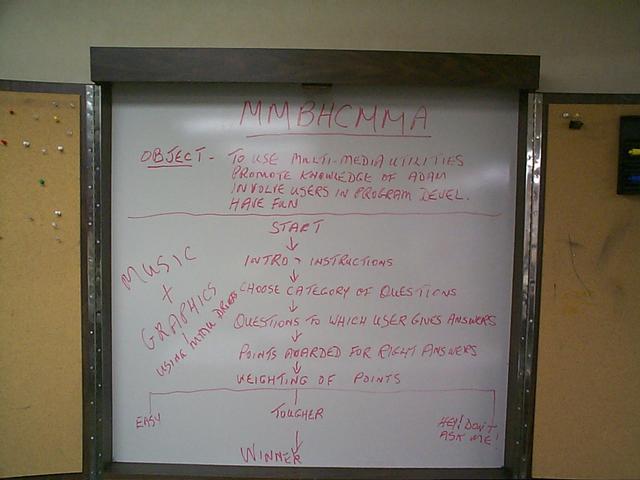 MMBHCMMA
OBJECT - TO USE MULTI-MEDIA UTILITIES
PROMOTE KNOWLEDGE OF ADAM
INVOLVE USERS IN PROGRAM DEVEL.
HAVE FUN
START
INTRO - INSTRUCTIONS
CHOOSE CATEGORY OF QUESTIONS
QUESTIONS TO WHICH USER GIVES ANSWERS
POINTS AWARDED FOR RIGHT ANSWERS
WEIGHTING OF POINTS
EASY
TOUGHER
HEY! DON'T
ASK ME!
WINNER
MUSIC
+
GRAPHICS
USING